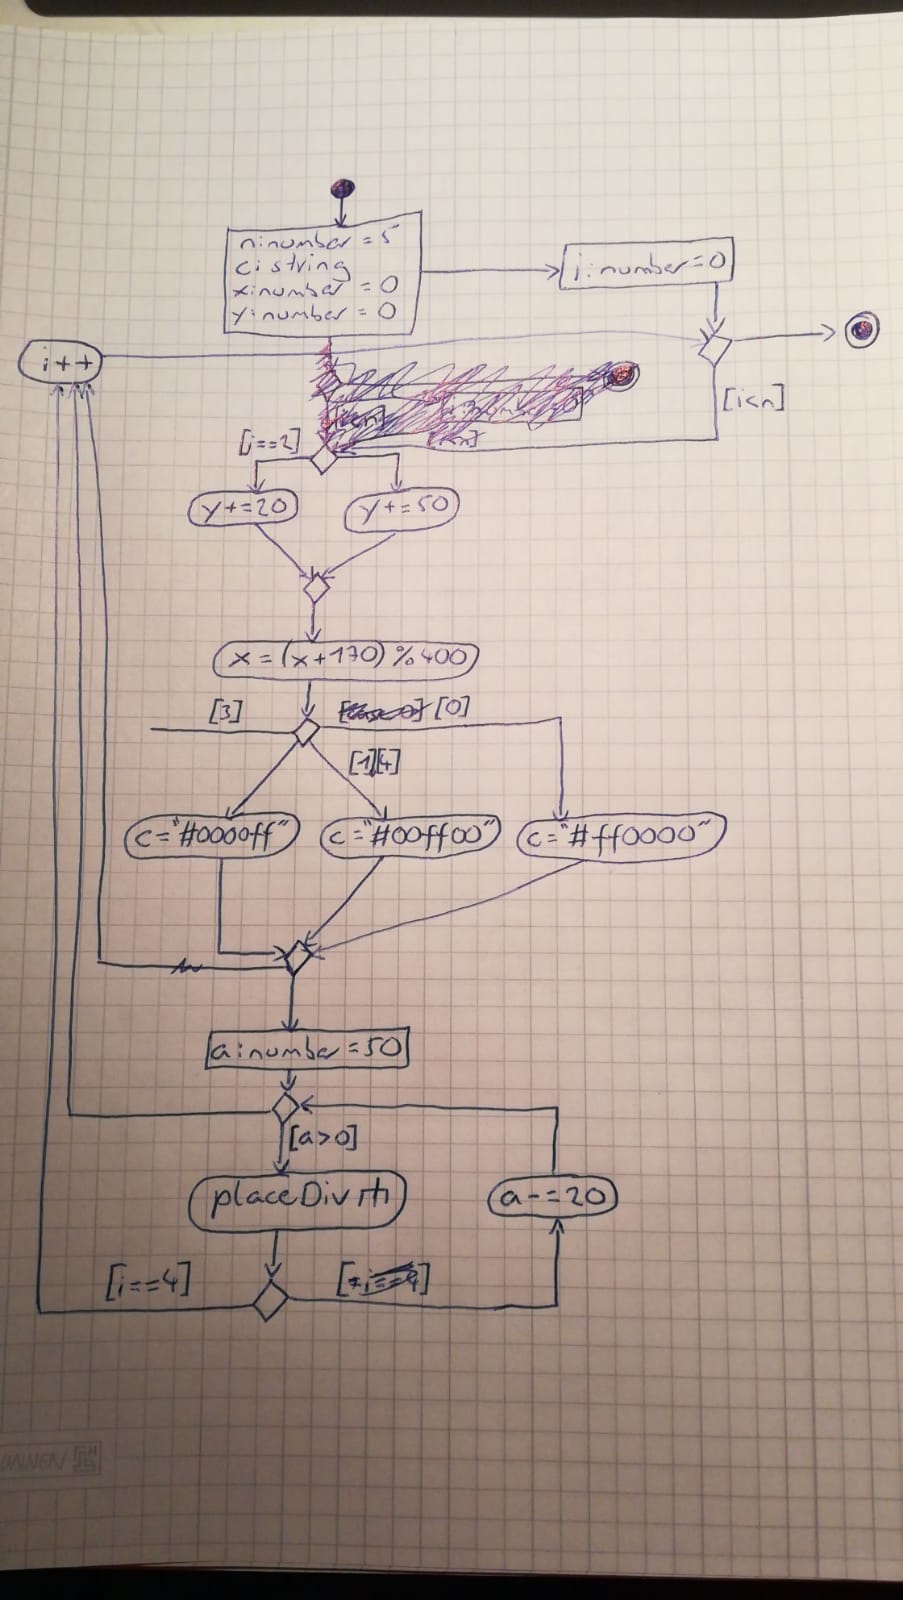 n:number = 5
c: string
x:number = 0
y:number = 0
i:number=0
i++
[i<n]
[i==2]
y+=20
y+=50
x=(x+170)%400
[3]
[0]
[1][4]
c="#0000ff"
c="#00ff00"
c="#ff0000"
a:number=50
[a>0]
placeDiv
a-=20
[i==4]